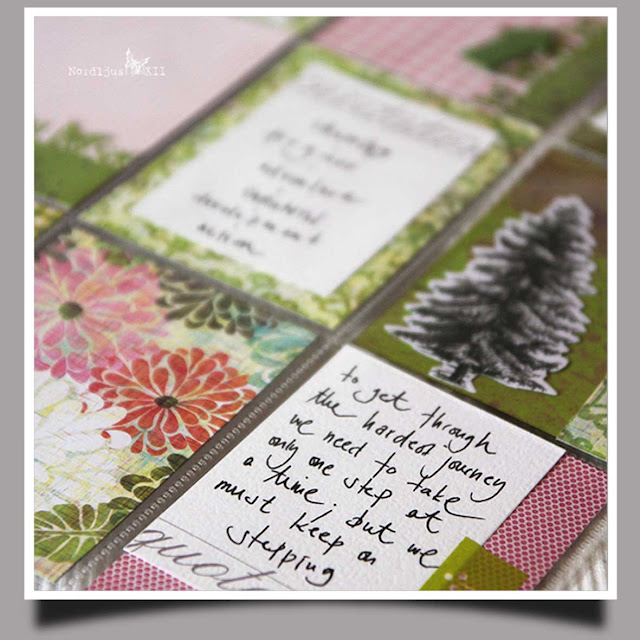 Nordljus XII
development
to get through
the hardest journey
we need to take
only one step at
a time, but we
must keep on
stepping
quote